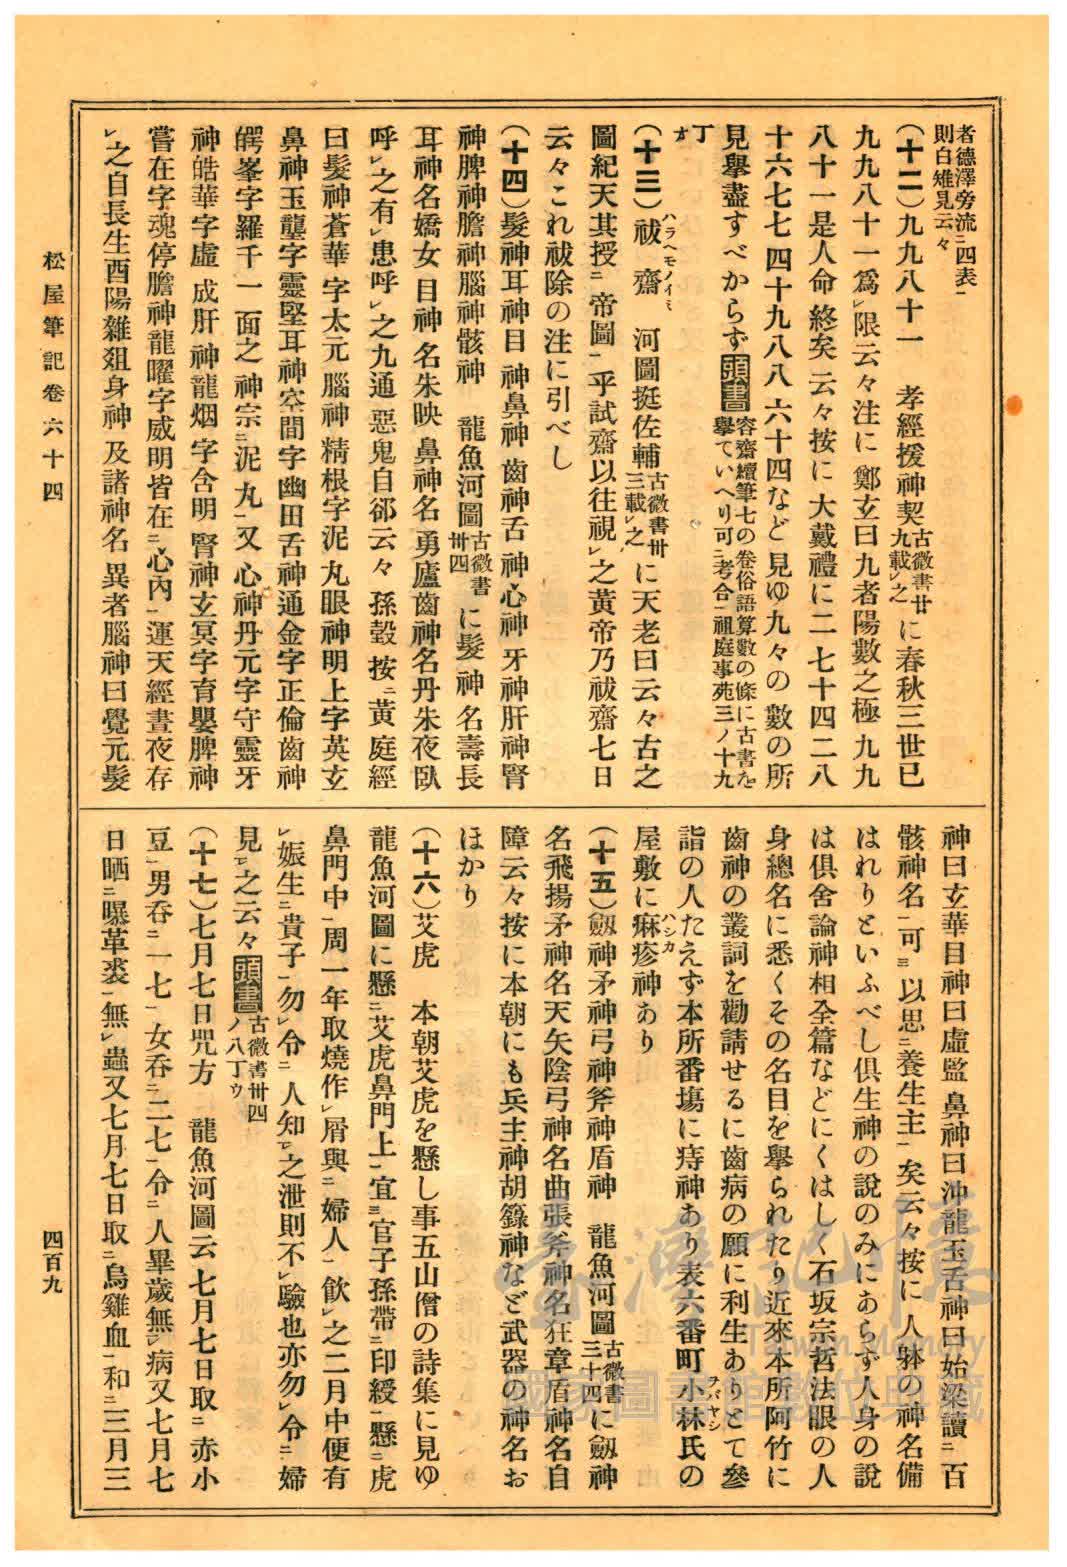 者德澤旁流ニ四表一
則白雉見云々
(十二)九九八十一　孝經援神契古微書廿九載レ之に春秋三世已
九九八十一爲レ限云々注に鄭玄曰九者陽數之極九九
八十一是人命終矣云々按に大戴禮に二七十四二八
十六七七四十九八八六十四など見ゆ九々の數の所
見擧盡すべからず頭書容齋續筆七の卷俗語算數の條に古書を擧ていへり可ニ考合一祖庭事苑三ノ十九
丁オ
(十三)祓齋ハラヘモノイミ　河圖挺佐輔古微書卅三載レ之に天老曰云々古之
圖紀天其授ニ帝圖一乎試齋以往視レ之黄帝乃祓齋七日
云々これ祓除の注に引べし
(十四)髮神耳神目神鼻神齒神舌神心神牙神肝神腎
神脾神膽神腦神骸神　龍魚河圖古微書卅四に髮神名壽長
耳神名嬌女目神名朱映鼻神名勇廬齒神名丹朱夜臥
呼レ之有レ患呼レ之九通惡鬼自郤云々孫瑴按ニ黄庭經
曰髮神蒼華字太元腦神精根字泥丸眼神明上字英玄
鼻神玉壟字靈堅耳神空間字幽田舌神通金字正倫齒神
崿峯字羅千一面之神宗ニ泥丸一又心神丹元字守靈牙
神皓華字虛成肝神龍烟字含明腎神玄冥字育嬰脾神
嘗在字魂停膽神龍曜字威明皆在ニ心內一運天經晝夜存
レ之自長生酉陽雜爼身神及諸神名異者腦神曰覺元髮
神曰玄華目神曰虛監鼻神曰沖龍玉舌神曰始梁讀ニ百
骸神名一可ニ以思ニ養生主一矣云々按に人躰の神名備
はれりといふべし倶生神の說のみにあらず人身の說
は倶舍論神相全篇などにくはしく石坂宗哲法眼の人
身總名に悉くその名目を擧られたり近來本所阿竹に
齒神の叢詞を勸請せるに齒病の願に利生ありとて參
詣の人たえず本所番塲に痔神あり表六番町小林ヲバヤシ氏の
屋敷に麻疹ハシカ神あり
(十五)劔神矛神弓神斧神盾神　龍魚河圖古微書三十四に劔神
名飛揚矛神名天矢陰弓神名曲張斧神名狂章盾神名自
障云々按に本朝にも兵主神胡籙神など武器の神名お
ほかり
(十六)艾虎　本朝艾虎を懸し事五山僧の詩集に見ゆ
龍魚河圖に懸ニ艾虎鼻門上一宜ニ官子孫帶ニ印綬一懸ニ虎
鼻門中一周一年取燒作レ屑與ニ婦人一飮レ之二月中便有
レ娠生ニ貴子一勿レ令ニ人知一レ之泄則不レ驗也亦勿レ令ニ婦
見一レ之云々頭書古微書卅四ノ八丁ウ
(十七)七月七日咒方　龍魚河圖云七月七日取ニ赤小
豆一男吞ニ一七一女吞ニ二七一令ニ人畢歲無一レ病又七月七
日晒ニ曝革裘一無レ蟲又七月七日取ニ烏雞血一和ニ三月三
松屋筆記卷六十四
四百九
臺灣記憶
Taiwan Memory
國家圖書館數位典藏